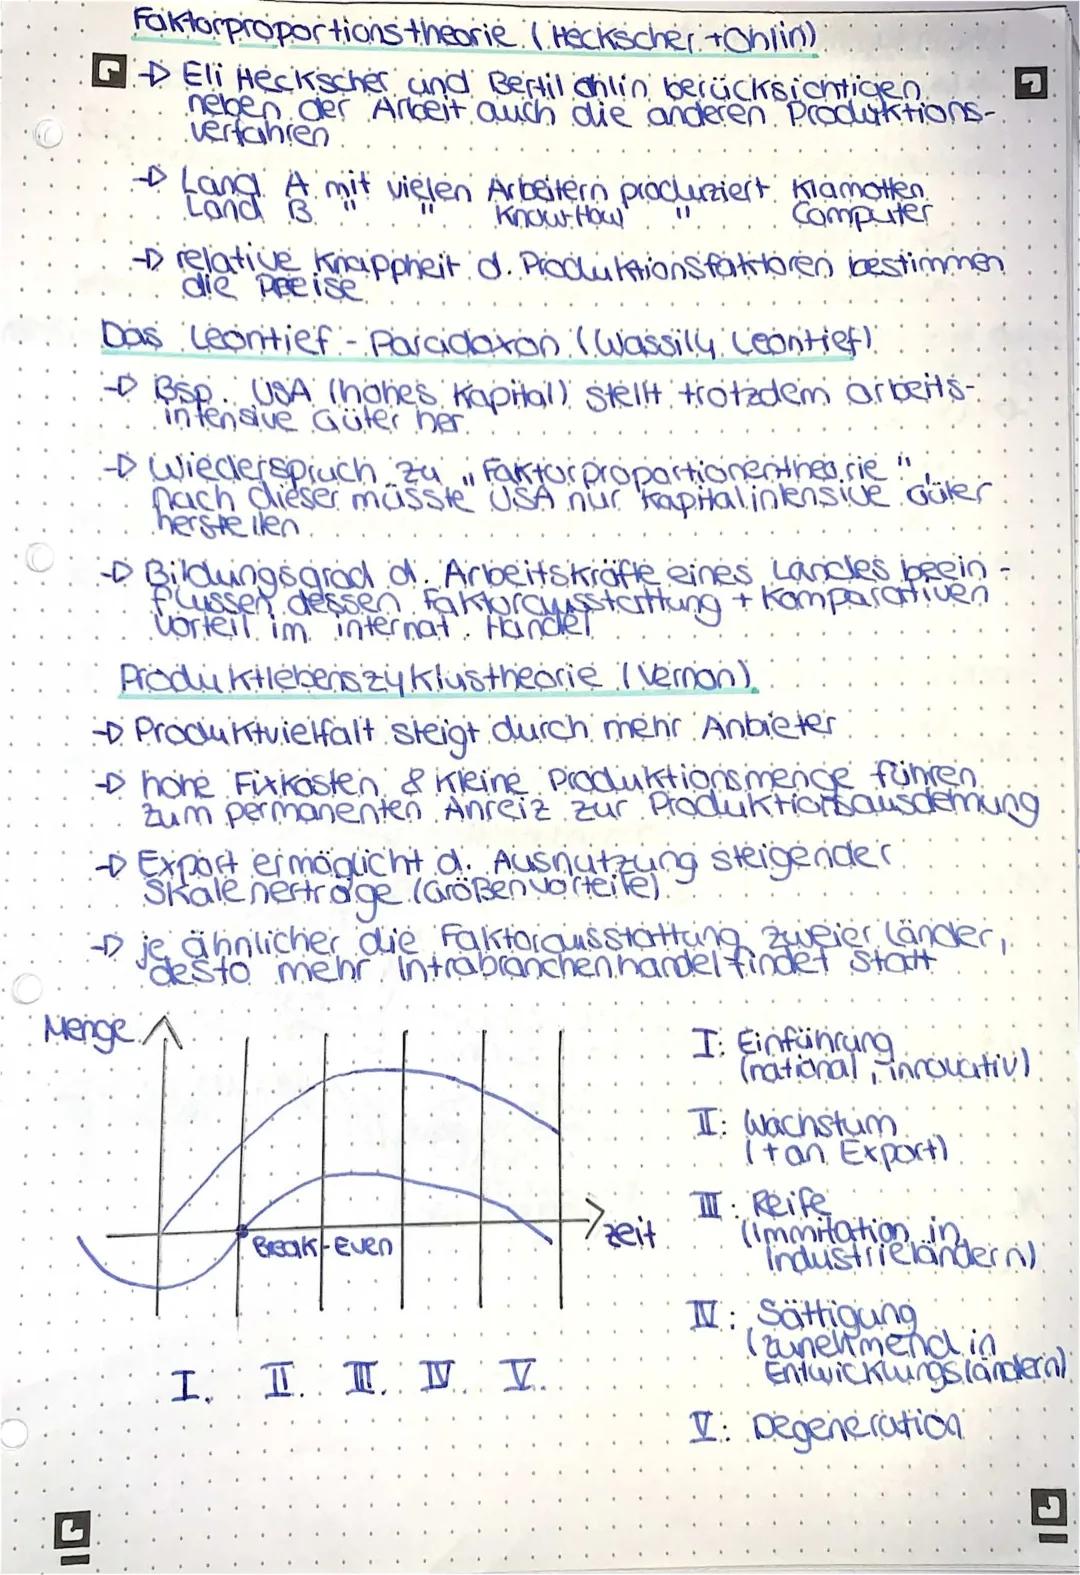 Faktorproportionstheorie (Heckscher + Ohlin)
→ Eli Heckscher und Bertil Ohlin berücksichtigen
neben der Arbeit auch die anderen Produktions-
verfahren
→ Land A mit vielen Arbeitern produziert Klamotten
Land B " " Know-How " Computer
→ relative Knappheit d. Produktionsfaktoren bestimmen
die Preise
Das Leontief-Paradoxon (Wassily Leontief)
→ Bsp. USA (hohes Kapital) stellt trotzdem arbeits-
intensive Güter her
→ Wiederspruch zu "Faktorproportionentheorie",
nach dieser müsste USA nur kapitalintensive Güter
herstellen
→ Bildungsgrad d. Arbeitskräfte eines Landes beein-
flussen dessen Faktorausstattung + komparativen
Vorteil im internat. Handel
Produktlebenszyklustheorie (Vernon)
→ Produktvielfalt steigt durch mehr Anbieter
→ hohe Fixkosten & kleine Produktionsmenge führen
zum permanenten Anreiz zur Produktionsausdehnung
→ Export ermöglicht d. Ausnutzung steigender
Skalenerträge (Größenvorteile)
→ je ähnlicher die Faktorausstattung zweier Länder,
desto mehr Intrabranchenhandel findet statt
Menge
Zeit
Break-Even
I. II. III. IV. V.
I: Einführung
(national, innovativ)
II: Wachstum
(+ an Export)
III: Reife
(Immitation in
Industrieländern)
IV: Sättigung
(zunehmend in
Entwicklungsländern)
V: Degeneration